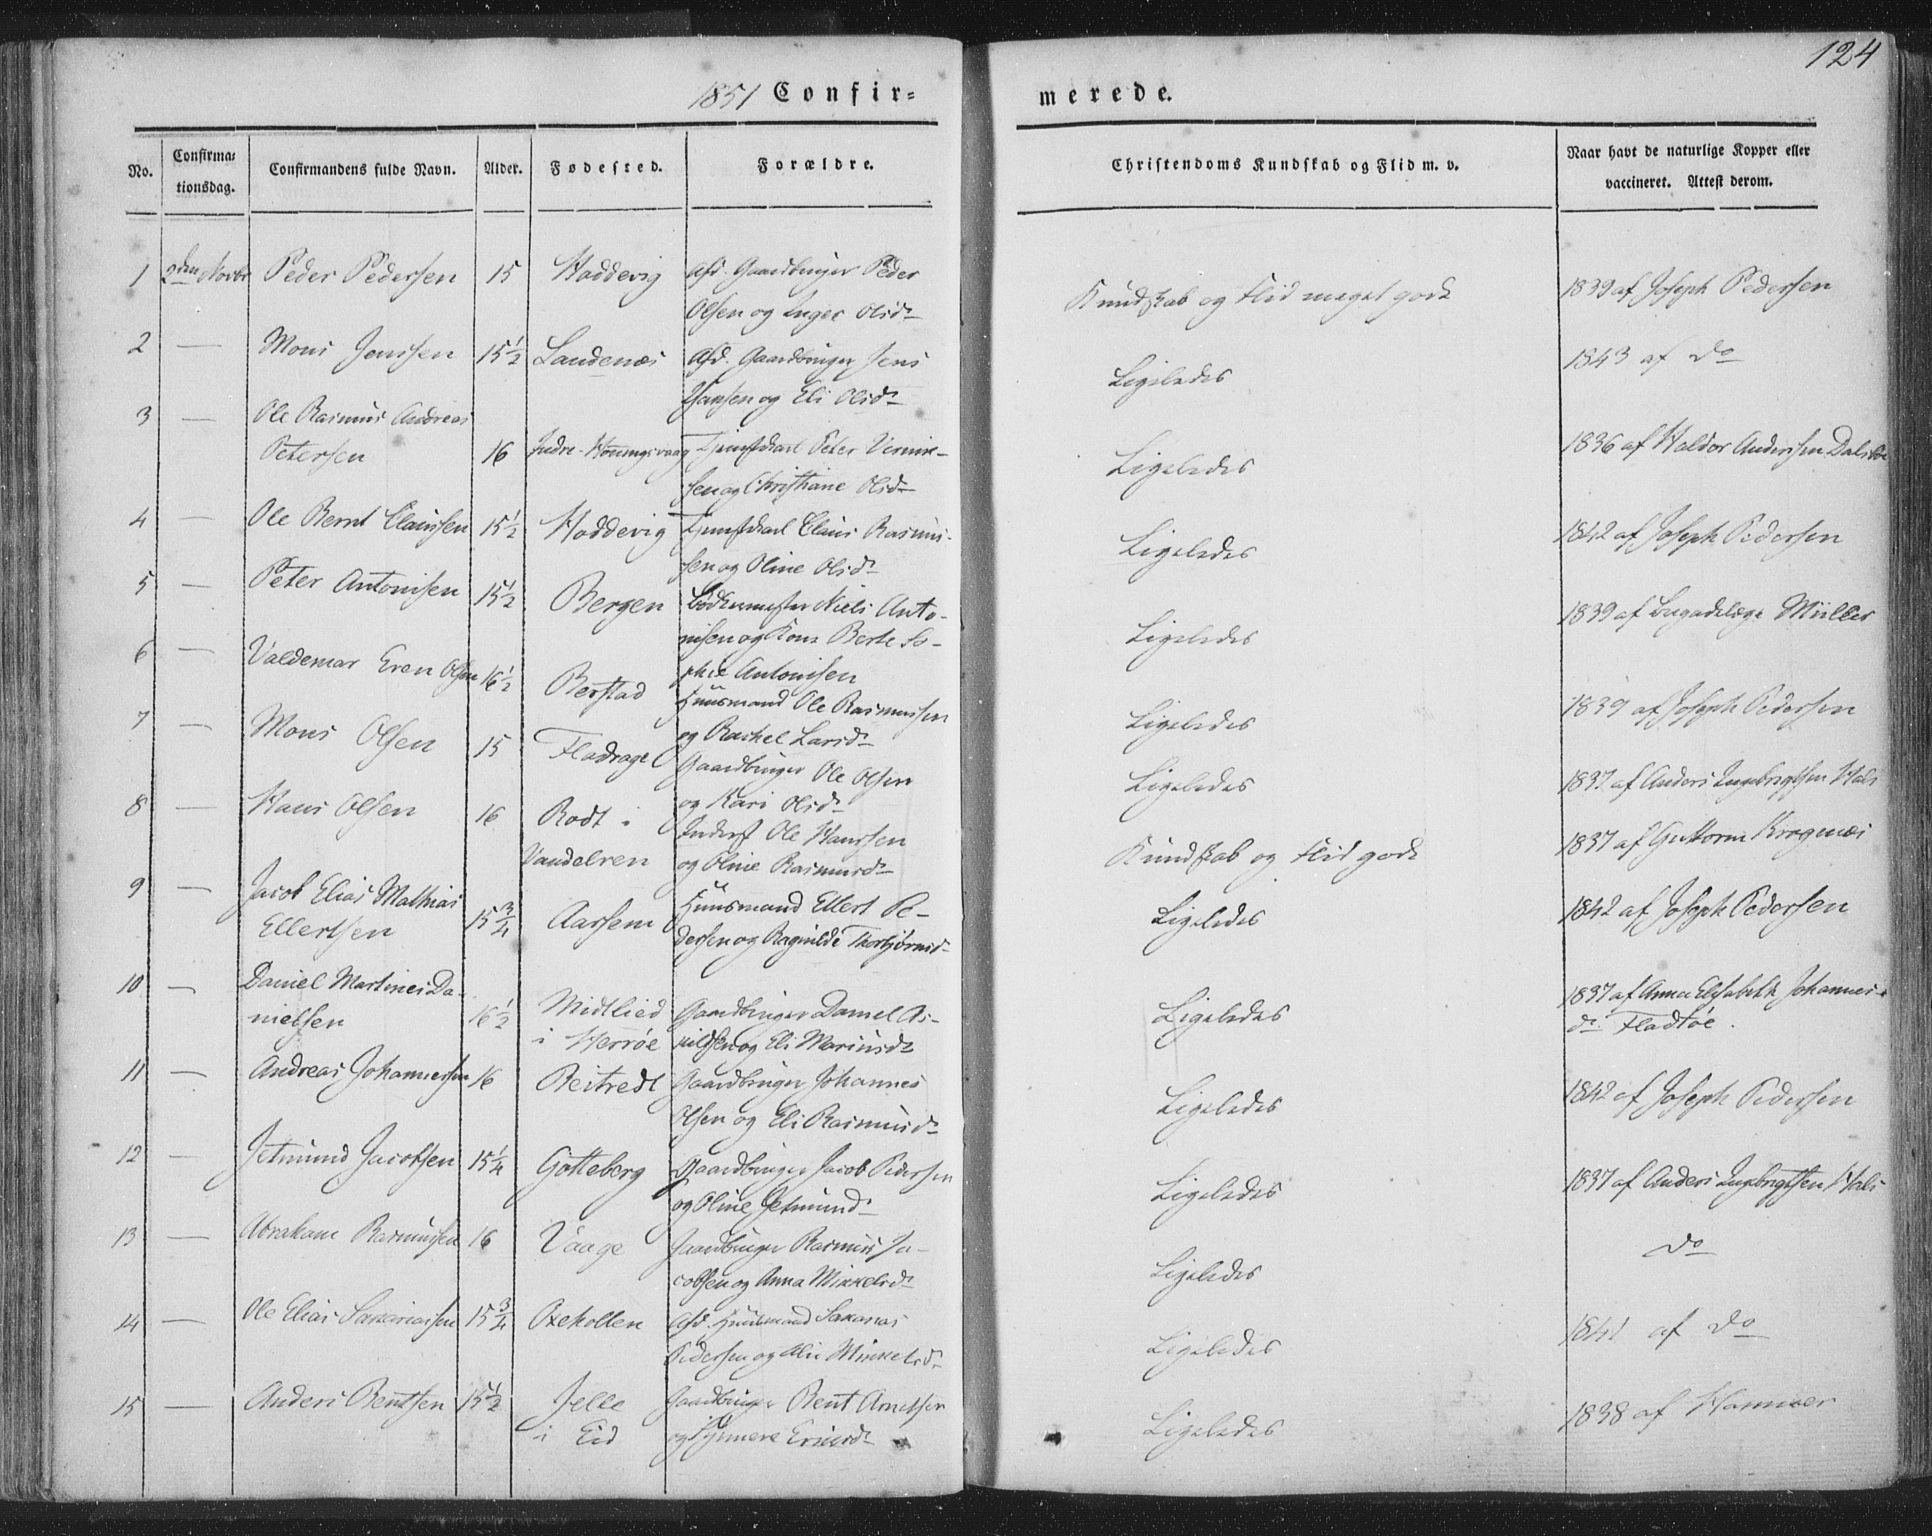 124
1851 Confir=
merede.
No.
Confirma=
tionsdag.
Confirmandens fulde Navn.
Alder.
Fødested.
Forældre.
Christendoms Kundskab og Flid m. v.
Naar havt de naturlige Kopper eller
vaccineret. Attest derom.
1 2den Novbr Peder Pedersen 15 Hoddevig Afd. Gaardbruger Peder
Olsen og Inger Olsd.
Kundskab og Flid meget godt 1839 af Joseph Pedersen
2 — Mons Jenssen 15½ Sandenæs Afd. Gaardbruger Jens
Hansen og Eli Olsd.
Ligeledes 1843 af Do
3 — Ole Rasmus Andreas
Petersen 16 Indre-Honningsvaag Tjenestekarl Peter
sen og Christiane Olsd.
Ligeledes 1836 af Haldor Andersen
4 — Ole Bernt Claussen 15½ Hoddevig Tjenestekarl Claus Rasmus-
sen og Oline Olsd.
Ligeledes 1842 af Joseph Pedersen
5 — Peter Antonisen 15½ Bergen Bødkermester Niels Anto-
nisen og Kone Berte So-
phie Antonisen
Ligeledes 1839 af Müller
6 — Valdemar Even Olsen 16½ Berstad Huusmand Ole Rasmussen
og Rachel Larsd.
Ligeledes 1839 af Joseph Pedersen
7 — Mons Olsen 15 Gaardbruger Ole Olsen
og Kari Olsd.
Ligeledes 1837 af Anders Ingebrigtsen Hals
8 — Hans Olsen 16 Rodt i
Vandelven Inderst Ole Hanssen
og Oline Rasmusd.
Kundskab og Flid godt 1837 af Guttorm Kragenæs
9 — Jacob Elias Mathias
Ellertsen 15¾ Aarsem Huusmand Ellert Pe-
dersen og Ragnilde Thorbjørnsd.
Ligeledes 1842 af Joseph Pedersen
10 — Daniel Martines Da-
nielsen 16½ Midtlied
i Herrøe Gaardbruger Daniel As-
kildsen og Eli Mariusd.
Ligeledes 1837 af Anna Elisabeth Johannes-
d. Fladtøe.
11 — Andreas Johannessen 16 Reitredt Gaardbruger Johannes
Olsen og Eli Rasmusd.
Ligeledes 1842 af Joseph Pedersen
12 — Jetmund Jacobsen 15¼ Gotteberg Gaardbruger Jacob Pedersen
og Oline Jetmundd.
Ligeledes 1837 af Anders Ingebrigtsen Hals
13 — Abraham Rasmussen 16 Vaage Gaardbruger Rasmus Ja-
cobsen og Anna Mikkelsd.
Ligeledes Do
14 — Ole Elias Sakariassen 15¾ Oxeholen Afd. Huusmand Sakarias
Pedersen og Mikkelsd.
Ligeledes 1841 af Do
15 — Anders Bentsen 15½ Jelle
i Eid Gaardbruger Bent Arnetsen
og
Ligeledes 1838 af Hammer